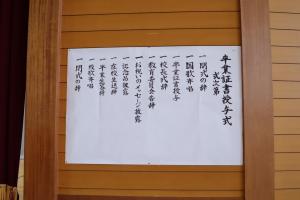 卒業証書授与式
式次第
一 開式の辞
一 国歌斉唱
一 卒業証書授与
一 校長式辞
一 教育委員会告辞
一 お祝いのメッセージ披露
一 記念品披露
一 在校生送辞
一 卒業生答辞
一 校歌斉唱
一 閉式の辞